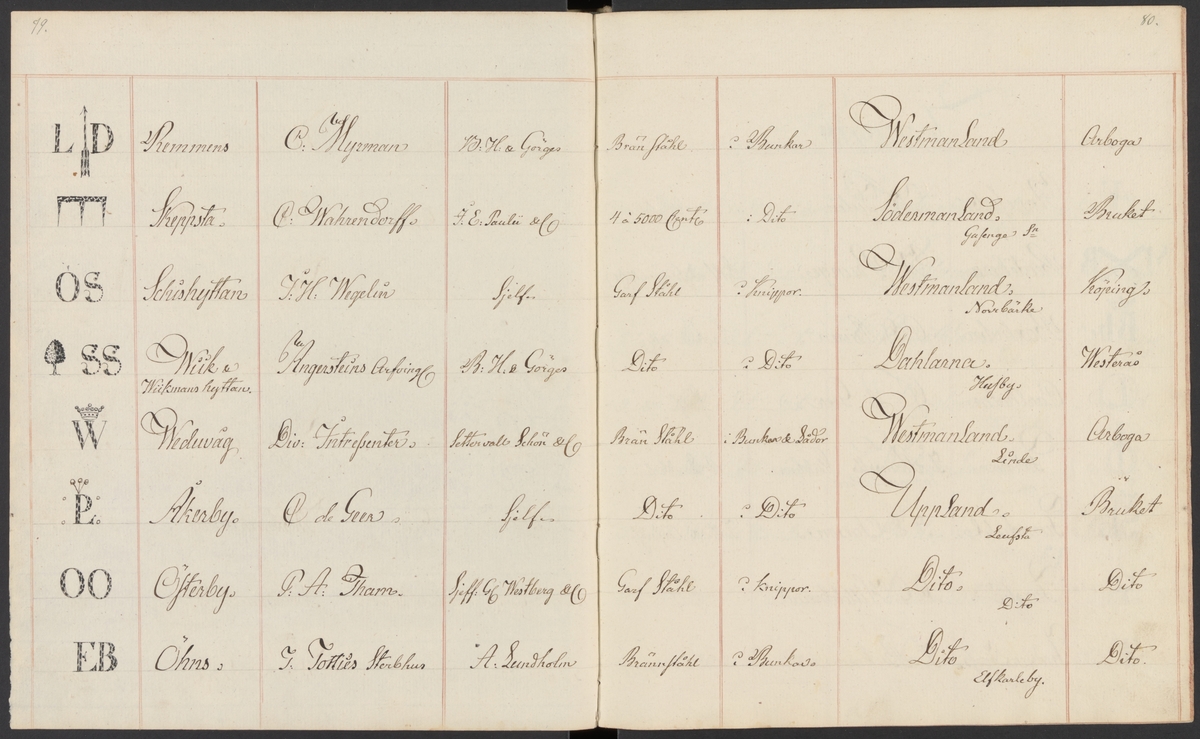 79.
80.
L D Remmens C: Myrman B: H. & Görges Brän Ståhl i Bunkar WestmanLand Arboga
Skeppsta. C: Wahrendorff. J. E. Paulii & C 4 à 5000 Cent i Dito SödermanLand. Bruket
Gåsenge Sn
OS Schishyttan J: H. Wegelin Sjelf. Garf Ståhl i Knippor. Westmanland. Kiöping.
Norrbärke
SS Wiik & Angersteins Arfving B: H. & Görges Dito i Dito Dahlarna. Westerås
Wiikmans hyttan. Husby.
W Wedevåg Div: Intressenter. Settervalt Schön & C Brän Ståhl i Bunkar & Lådor WestmanLand. Arboga
Linde
:P: Åkerby. C de Geer Sjelf. Dito i Dito UppLand. Bruket
Leufsta
OO Österby. P: A: Tham. Sjelf: G Westberg & C Garf Ståhl i Knippor. Dito. Dito
Dito
EB Öhns. J. Totties Sterbhus A: Lundholm Brännståhl i Bunkar. Dito Dito.
Elfkarleby.